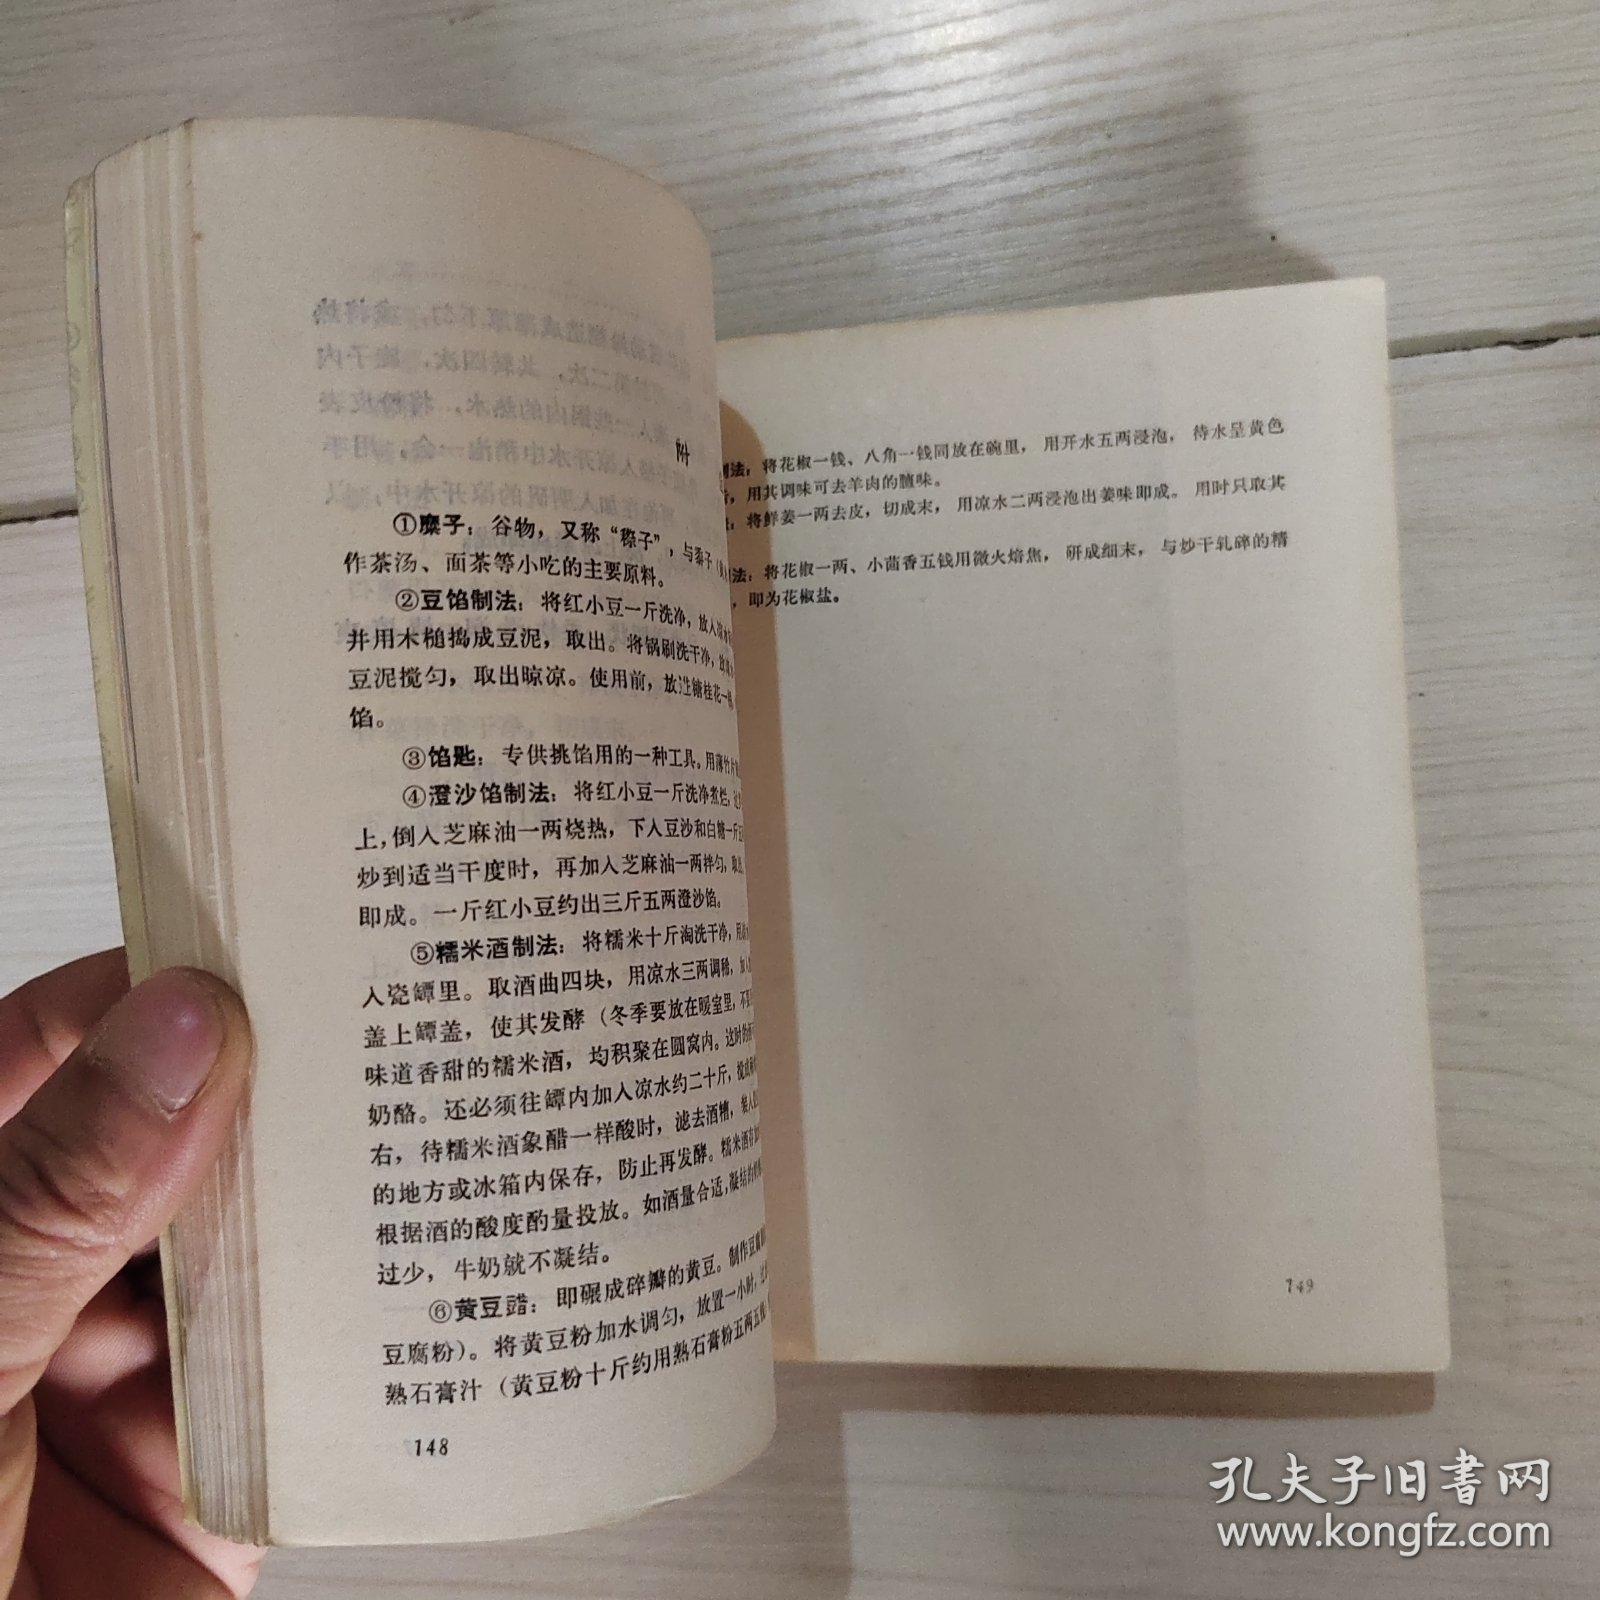 附
①糜子：谷物，又称“穄子”，与黍子（
作茶汤、面茶等小吃的主要原料。
②豆馅制法：将红小豆一斤洗净，放入
并用木槌捣成豆泥，取出。将锅刷洗干净，放
豆泥搅匀，取出晾凉。使用前，放进糖桂花一
馅。
③馅匙：专供挑馅用的一种工具。用薄竹片
④澄沙馅制法：将红小豆一斤洗净煮烂，
上，倒入芝麻油一两烧热，下入豆沙和白糖一斤
炒到适当干度时，再加入芝麻油一两拌匀，取
即成。一斤红小豆约出三斤五两澄沙馅。
⑤糯米酒制法：将糯米十斤淘洗干净，用
入瓷罈里。取酒曲四块，用凉水三两调稀，加
盖上罈盖，使其发酵（冬季要放在暖室里，不
味道香甜的糯米酒，均积聚在圆窝内。这时的
奶酪。还必须往罈内加入凉水约二十斤，搅
右，待糯米酒象醋一样酸时，滤去酒糟，
的地方或冰箱内保存，防止再发酵。糯米酒
根据酒的酸度酌量投放。如酒量合适，凝结的
过少，牛奶就不凝结。
⑥黄豆䜺：即碾成碎瓣的黄豆。制作豆腐
豆腐粉）。将黄豆粉加水调匀，放置一小时，
熟石膏汁（黄豆粉十斤约用熟石膏粉五两五钱
148
制法：将花椒一钱、八角一钱同放在碗里，用开水五两浸泡，待水呈黄色
，用其调味可去羊肉的膻味。
：将鲜姜一两去皮，切成末，用凉水二两浸泡出姜味即成。用时只取其
法：将花椒一两、小茴香五钱用微火焙焦，研成细末，与炒干轧碎的精
，即为花椒盐。
149
孔夫子旧书网
www.kongfz.com